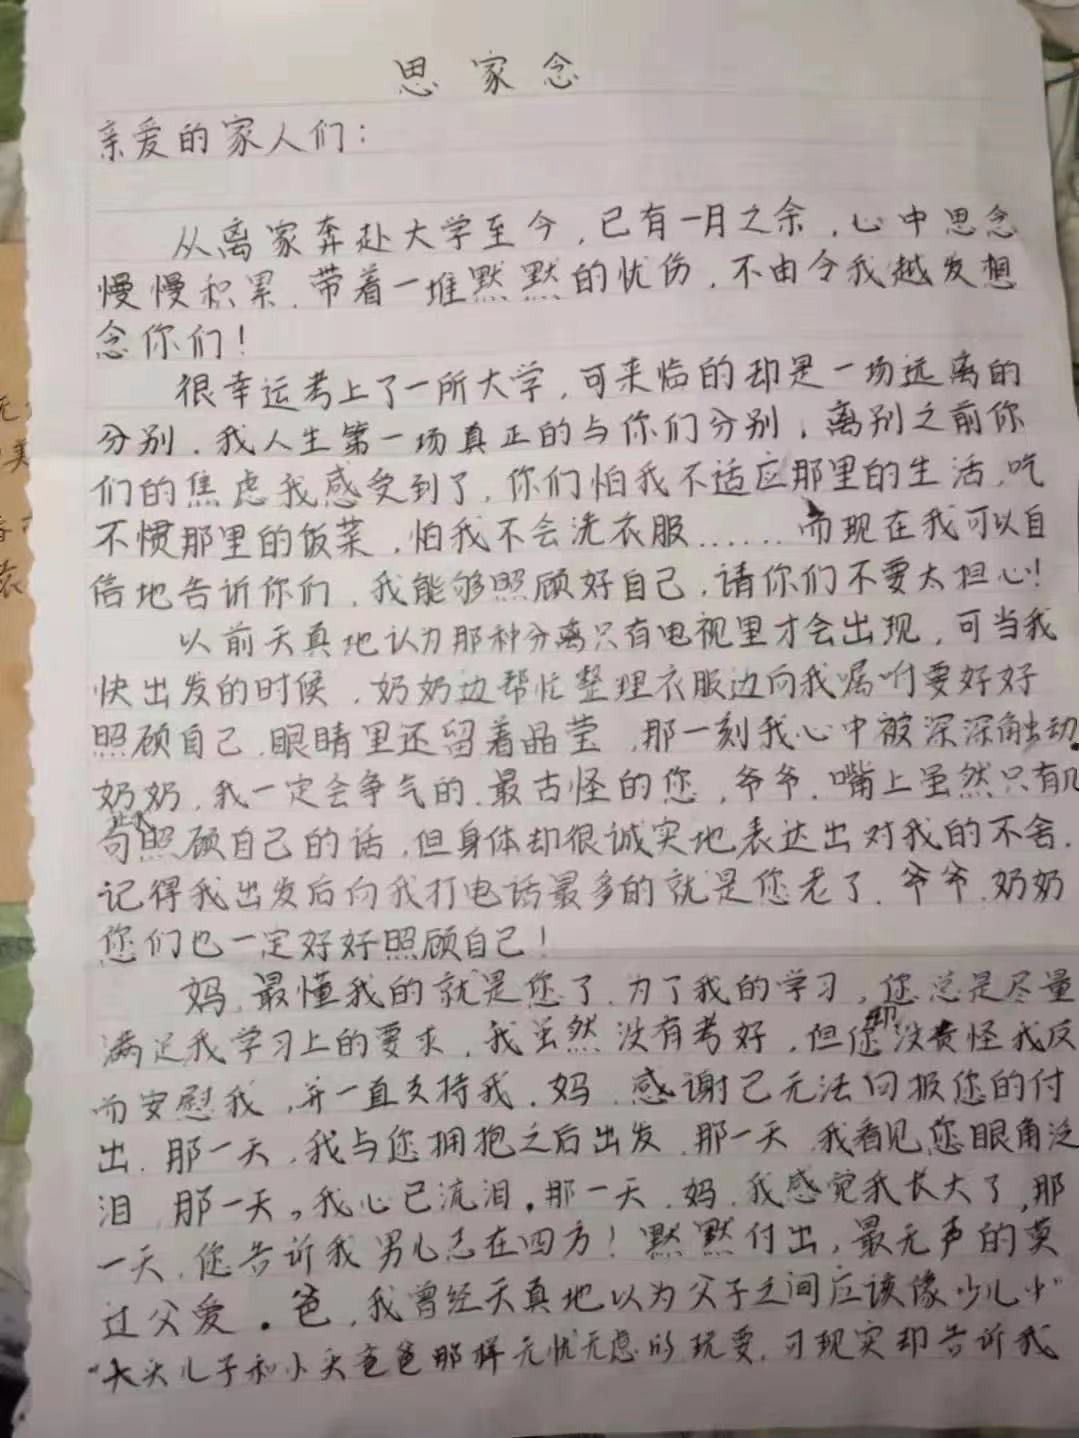 思家念
亲爱的家人们：
从离家奔赴大学至今，已有一月之余，心中思念
慢慢积累，带着一堆默默的忧伤，不由令我越发想
念你们！
很幸运考上了一所大学，可来临的却是一场远离的
分别，我人生第一场真正的与你们分别，离别之前你
们的焦虑我感受到了，你们怕我不适应那里的生活，吃
不惯那里的饭菜，怕我不会洗衣服……而现在我可以自
信地告诉你们，我能够照顾好自己，请你们不要太担心！
以前天真地认为那种分离只有电视里才会出现，可当我
快出发的时候，奶奶边帮忙整理衣服边向我嘱咐要好好
照顾自己，眼睛里还留着晶莹，那一刻我心中被深深触动，
奶奶，我一定会争气的，最古怪的您，爷爷，嘴上虽然只有几
句照顾自己的话，但身体却很诚实地表达出对我的不舍，
记得我出发后向我打电话最多的就是您老了，爷爷，奶奶
您们也一定好好照顾自己！
妈，最懂我的就是您了，为了我的学习，您总是尽量
满足我学习上的要求，我虽然没有考好，但您却没责怪我反
而安慰我，并一直支持我，妈，感谢已无法回报您的付
出，那一天，我与您拥抱之后出发，那一天，我看见您眼角泛
泪，那一天，我心已流泪，那一天，妈，我感觉我长大了，那
一天，您告诉我男儿志在四方！默默付出，最无声的莫
过父爱。爸，我曾经天真地以为父子之间应该像少儿小"
"大头儿子和小头爸爸那样无忧无虑的玩耍，可现实却告诉我